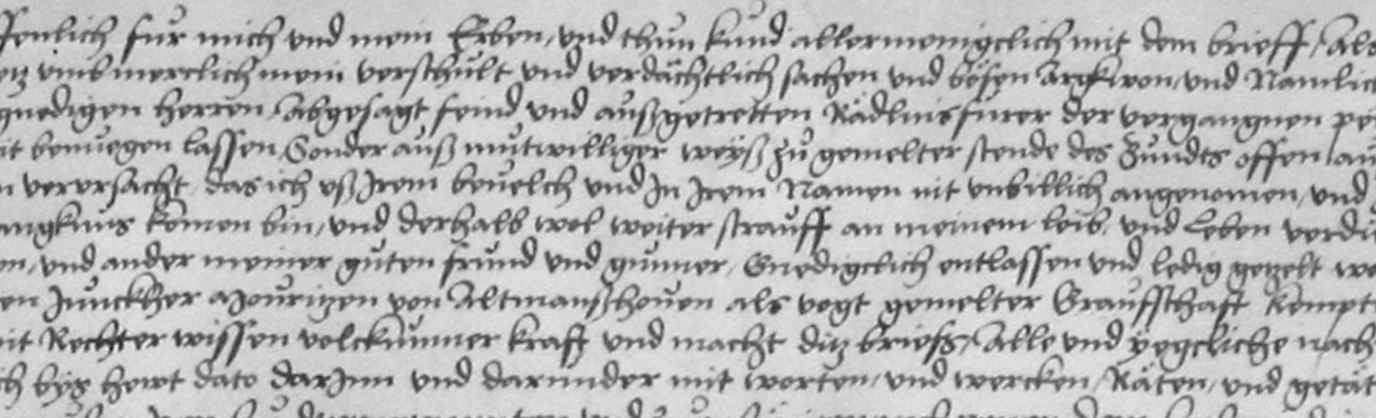 fenlich fur mich vnd mein Erben, vnd thun kund allermenigclich mit dem brieff, Als
vmb mercklich mein verschult vnd verdächtlich sachen vnd bösen Argkwon, vnd Namlic
gnedigen herren Abgesagt feind vnd außgetretten Rädlinsfürer der vergangnen pe
it benuegen lassen, Sonder auß mutwilliger weyß zu gemelter stende des Bundts offen
n verursacht, das ich uß Irem beuelch vnd In Irem Namen nit vnbillich angenomen, vnd
angknus komen bin, vnd derhalb wol weiter strauff an meinem leib, vnd Leben verdi
en, vnd ander meiner guten frund vnd gunner, Gnedigclich entlassen vnd ledig gezelt wo
en Junckher Mouritzen von Altmanßhouen als vogt gemelter Grauffschaft Kempt
it Rechter wissen volckumner krafft vnd macht ditz brieffs, Alle vnd yegcliche nach
ch byß hewt dato darInn vnd darunder mit worten, vnd wercken, Räten, vnd getät